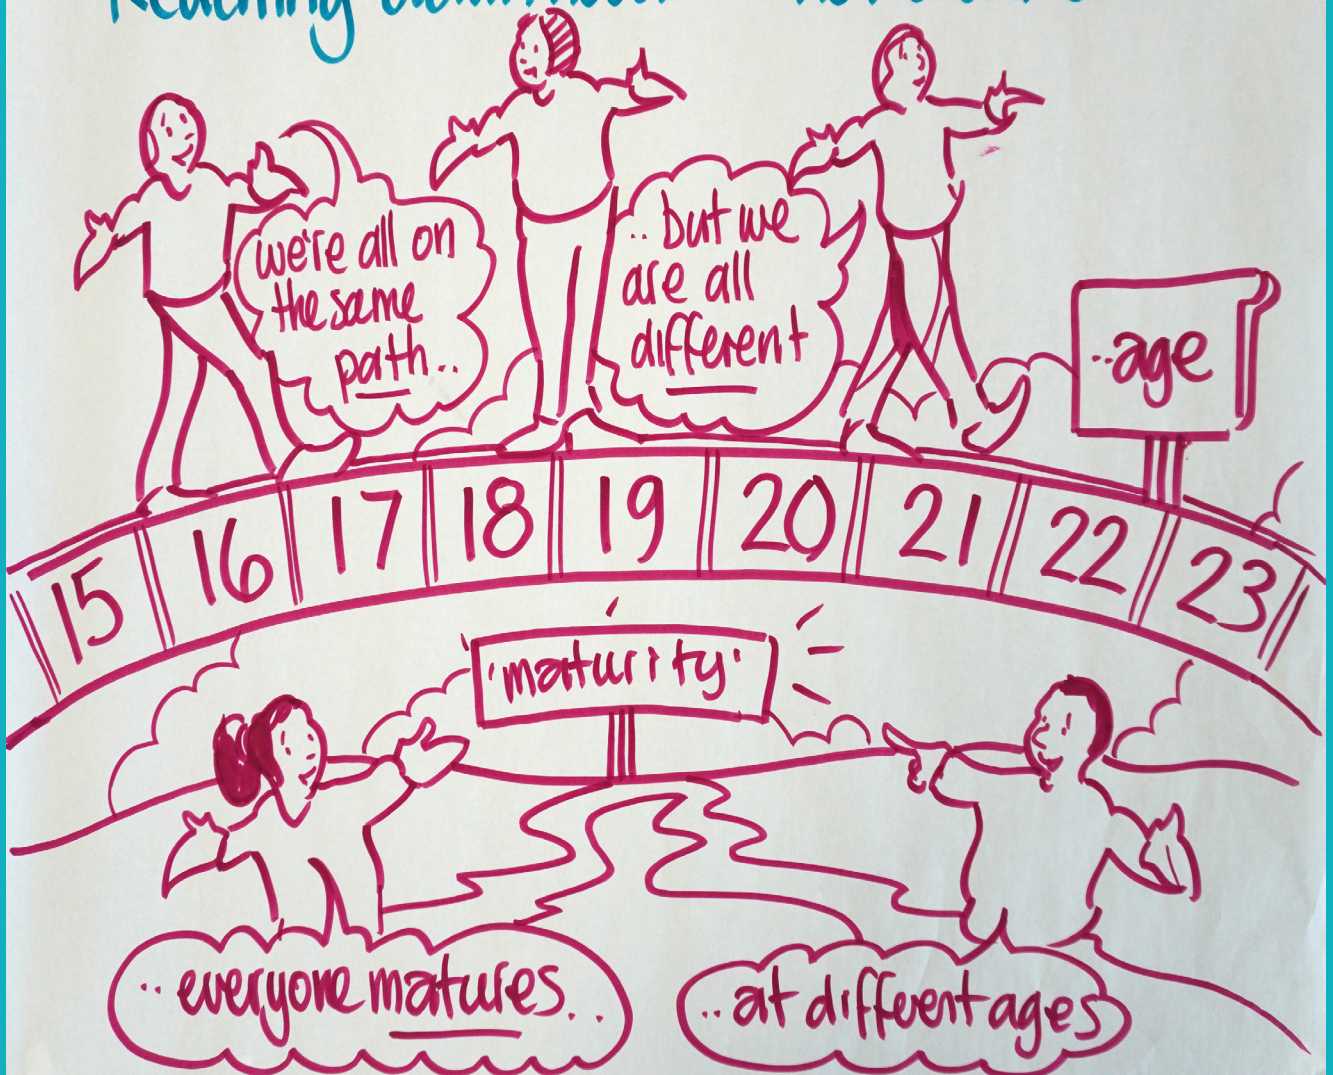 Reaching
we're all on
the same
path..
.. but we
are all
different
..age
15 16 17 18 19 20 21 22 23
'maturity'
.. everyone matures..
..at different ages